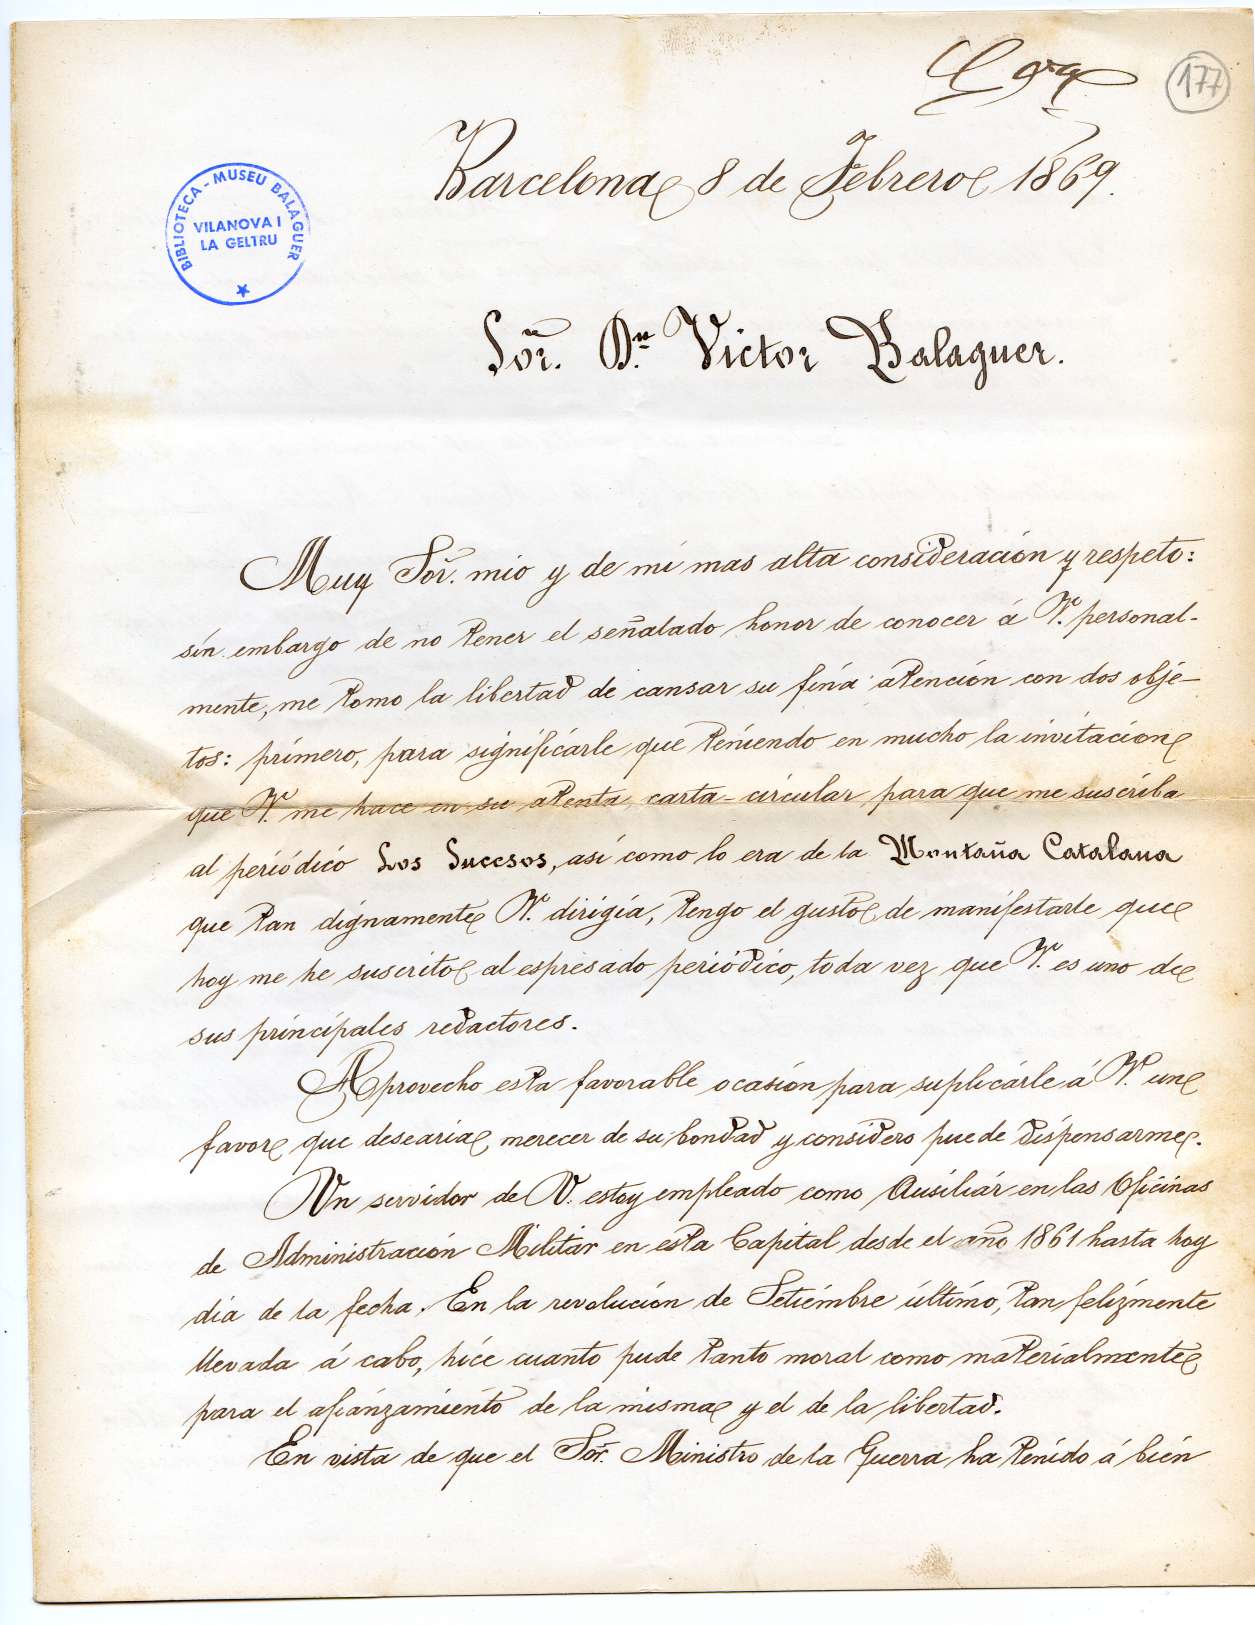 177
Barcelona 8 de Febrero 1869.
BIBLIOTECA - MUSEU BALAGUER
VILANOVA I
LA GELTRU
Sor. Dn. Victor Balaguer.
Muy Sor. mio y de mi mas alta consideración y respeto:
sin embargo de no tener el señalado honor de conocer á V. personal-
mente, me tomo la libertad de cansar su fina atención con dos obje-
tos: primero, para significarle que teniendo en mucho la invitacion
que V. me hace en su atenta carta-circular para que me suscriba
al periódico Los Sucesos, así como lo era de la Montaña Catalana
que tan dignamente V. dirigia, tengo el gusto de manifestarle que
hoy me he suscrito al espresado periódico, toda vez que V. es uno de
sus principales redactores.
Aprovecho esta favorable ocasión para suplicárle á V. un
favor que desearia merecer de su bondad y considero puede dispensarme.
Un servidor de V. estoy empleado como Ausiliár en las Oficinas
de Administración Militár en esta Capital desde el año 1861 hasta hoy
dia de la fecha. En la revolución de Setiémbre último, tan felizmente
llevada á cabo, hice cuanto pude tanto moral como materialmente
para el afianzamiento de la misma y el de la libertad.
En vista de que el Sor. Ministro de la Guerra ha tenido á bién